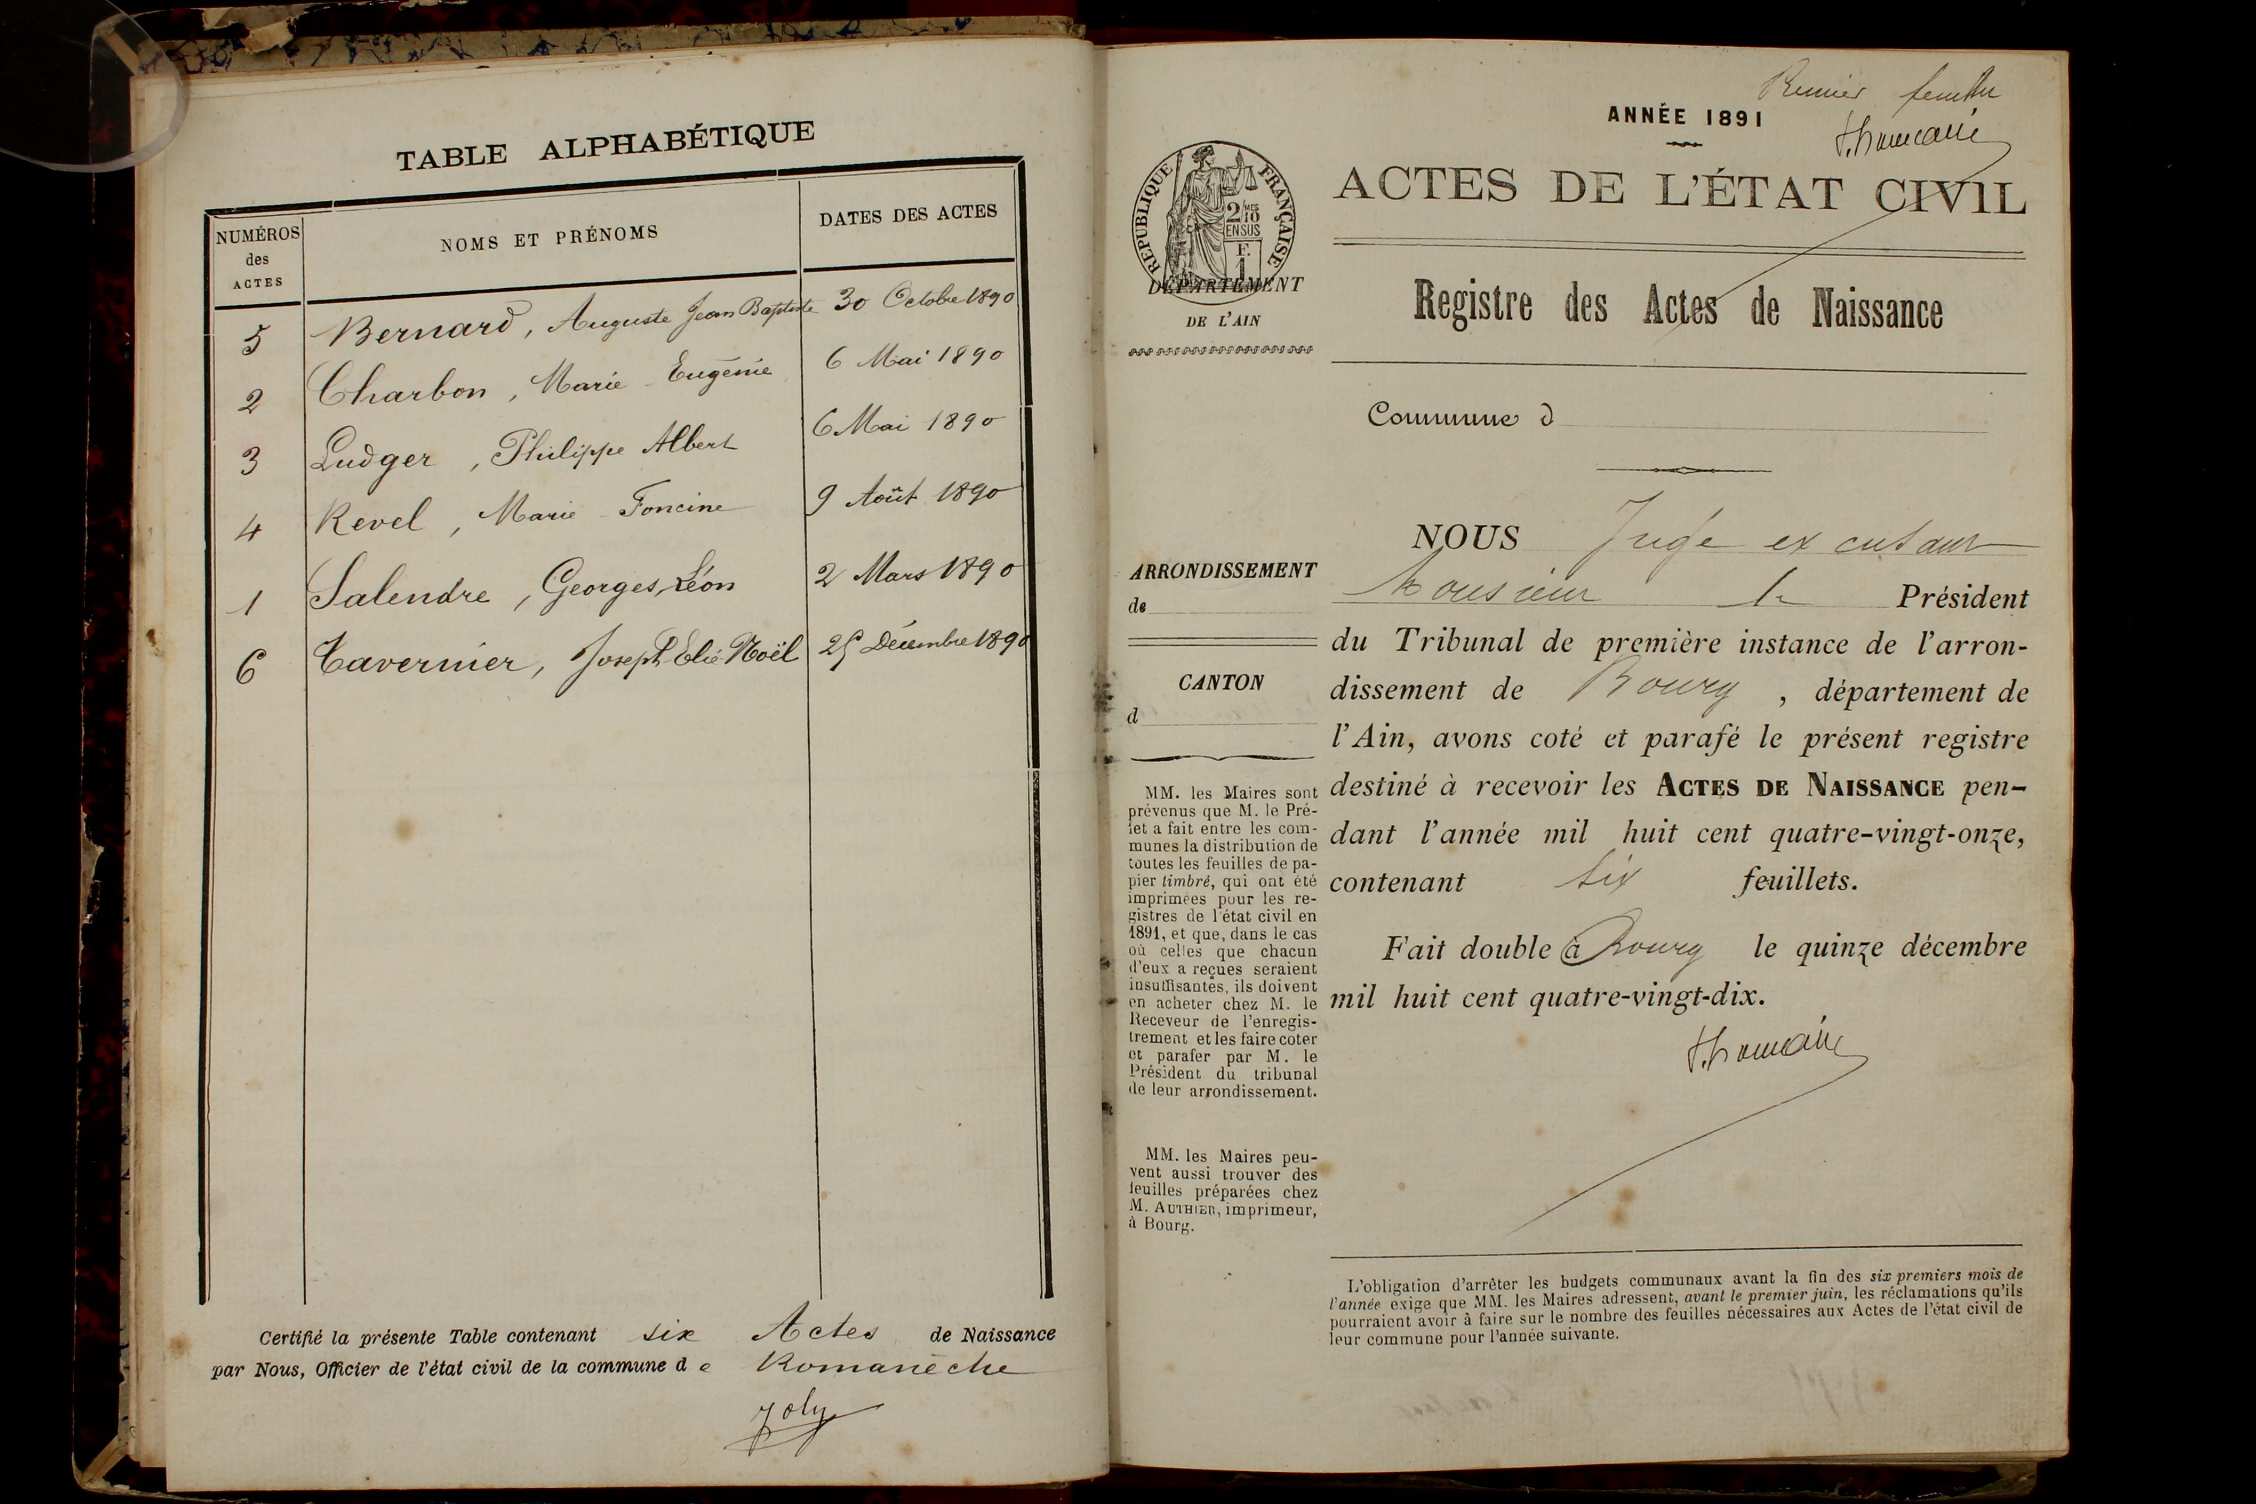 TABLE ALPHABÉTIQUE
NUMÉROS
des
ACTES
NOMS ET PRÉNOMS
DATES DES ACTES
5 Bernard, Auguste Jean Baptiste 30 Octobre 1890
2 Charbon, Marie Eugénie 6 Mai 1890
3 Ludger, Philippe Albert 6 Mai 1890
4 Revel, Marie Foncine 9 Août 1890
1 Salendre, Georges, Léon 2 Mars 1890
6 Tavernier, Joseph Elie Noël 25 Décembre 1890
Certifié la présente Table contenant six Actes de Naissance
par Nous, Officier de l'état civil de la commune de Romanèche
Joly
Premier feuillet
ANNÉE 1891
RÉPUBLIQUE FRANÇAISE
2/10 MES
EN SUS
F.
1
DÉPARTEMENT
DE L'AIN
ACTES DE L'ÉTAT CIVIL
Registre des Actes de Naissance
Commune d
ARRONDISSEMENT
de
CANTON
d
MM. les Maires sont
prévenus que M. le Pré-
fet a fait entre les com-
munes la distribution de
toutes les feuilles de pa-
pier timbré, qui ont été
imprimées pour les re-
gistres de l'état civil en
1891, et que, dans le cas
où celles que chacun
d'eux a reçues seraient
insuffisantes, ils doivent
en acheter chez M. le
Receveur de l'enregis-
trement et les faire coter
et parafer par M. le
Président du tribunal
de leur arrondissement.
MM. les Maires peu-
vent aussi trouver des
feuilles préparées chez
M. AUTHIER, imprimeur,
à Bourg.
NOUS Juge
Monsieur le Président
du Tribunal de première instance de l'arron-
dissement de Bourg, département de
l'Ain, avons coté et parafé le présent registre
destiné à recevoir les ACTES DE NAISSANCE pen-
dant l'année mil huit cent quatre-vingt-onze,
contenant six feuillets.
Fait double à Bourg le quinze décembre
mil huit cent quatre-vingt-dix.
L'obligation d'arrêter les budgets communaux avant la fin des six premiers mois de
l'année exige que MM. les Maires adressent, avant le premier juin, les réclamations qu'ils
pourraient avoir à faire sur le nombre des feuilles nécessaires aux Actes de l'état civil de
leur commune pour l'année suivante.